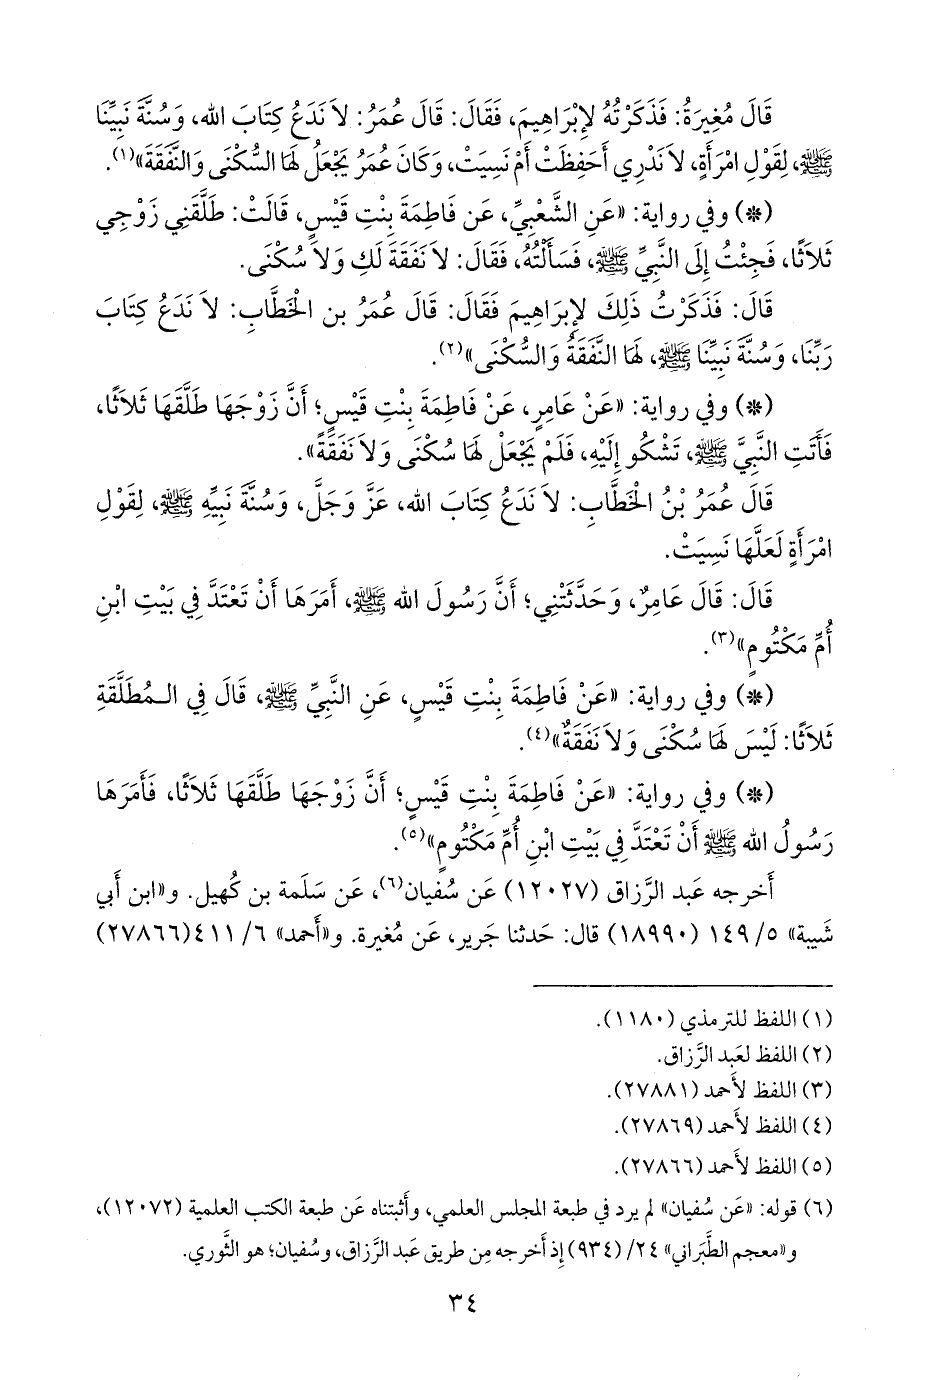 قَالَ مُغِيرَةُ: فَذَكَرْتُهُ لإِبْرَاهِيمَ، فَقَالَ: قَالَ عُمَرُ: لاَ نَدَعُ كِتَابَ الله، وَسُنَّةَ نَبِيِّنَا
ﷺ، لِقَوْلِ امْرَأَةٍ، لاَ نَدْرِي أَحَفِظَتْ أَمْ نَسِيَتْ، وَكَانَ عُمَرُ يَجْعَلُ لَهَا السُّكْنَى وَالنَّفَقَةَ»(١).
(*) وفي رواية: «عَنِ الشَّعْبِيِّ، عَن فَاطِمَةَ بِنْتِ قَيْسٍ، قَالَتْ: طَلَّقَنِي زَوْجِي
ثَلاَثًا، فَجِئْتُ إِلَى النَّبِيِّ ﷺ، فَسَأَلْتُهُ، فَقَالَ: لاَ نَفَقَةَ لَكِ وَلاَ سُكْنَى.
قَالَ: فَذَكَرْتُ ذَلِكَ لإِبْرَاهِيمَ فَقَالَ: قَالَ عُمَرُ بن الْخَطَّابِ: لاَ نَدَعُ كِتَابَ
رَبِّنَا، وَسُنَّةَ نَبِيِّنَا ﷺ، لَهَا النَّفَقَةُ وَالسُّكْنَى»(٢).
(*) وفي رواية: «عَنْ عَامِرٍ، عَنْ فَاطِمَةَ بِنْتِ قَيْسٍ؛ أَنَّ زَوْجَهَا طَلَّقَهَا ثَلاَثًا،
فَأَتَتِ النَّبِيَّ ﷺ، تَشْكُو إِلَيْهِ، فَلَمْ يَجْعَلْ لَهَا سُكْنَى وَلاَ نَفَقَةً».
قَالَ عُمَرُ بْنُ الْخَطَّابِ: لاَ نَدَعُ كِتَابَ الله، عَزَّ وَجَلَّ، وَسُنَّةَ نَبِيِّهِ ﷺ، لِقَوْلِ
امْرَأَةٍ لَعَلَّهَا نَسِيَتْ.
قَالَ: قَالَ عَامِرٌ، وَحَدَّثَتْنِي؛ أَنَّ رَسُولَ الله ﷺ، أَمَرَهَا أَنْ تَعْتَدَّ فِي بَيْتِ ابْنِ
أُمِّ مَكْتُومٍ»(٣).
(*) وفي رواية: «عَنْ فَاطِمَةَ بِنْتِ قَيْسٍ، عَنِ النَّبِيِّ ﷺ، قَالَ فِي الـمُطَلَّقَةِ
ثَلاَثًا: لَيْسَ لَهَا سُكْنَى وَلاَ نَفَقَةٌ»(٤).
(*) وفي رواية: «عَنْ فَاطِمَةَ بِنْتِ قَيْسٍ؛ أَنَّ زَوْجَهَا طَلَّقَهَا ثَلاَثًا، فَأَمَرَهَا
رَسُولُ الله ﷺ أَنْ تَعْتَدَّ فِي بَيْتِ ابْنِ أُمِّ مَكْتُومٍ»(٥).
أَخرجه عَبد الرَّزاق (١٢٠٢٧) عَن سُفيان(٦)، عَن سَلَمة بن كُهيل. و«ابن أَبي
شَيبة» ٥/ ١٤٩ (١٨٩٩٠) قال: حَدثنا جَرير، عَن مُغيرة. و«أَحمد» ٦/ ٤١١(٢٧٨٦٦)
(١) اللفظ للترمذي (١١٨٠).
(٢) اللفظ لعَبد الرَّزاق.
(٣) اللفظ لأَحمد (٢٧٨٨١).
(٤) اللفظ لأَحمد (٢٧٨٦٩).
(٥) اللفظ لأَحمد (٢٧٨٦٦).
(٦) قوله: «عَن سُفيان» لم يرد في طبعة المجلس العلمي، وأَثبتناه عَن طبعة الكتب العلمية (١٢٠٧٢)،
و«معجم الطَّبَراني» ٢٤/ (٩٣٤) إِذ أَخرجه مِن طريق عَبد الرَّزاق، وسُفيان؛ هو الثَّوري.
٣٤